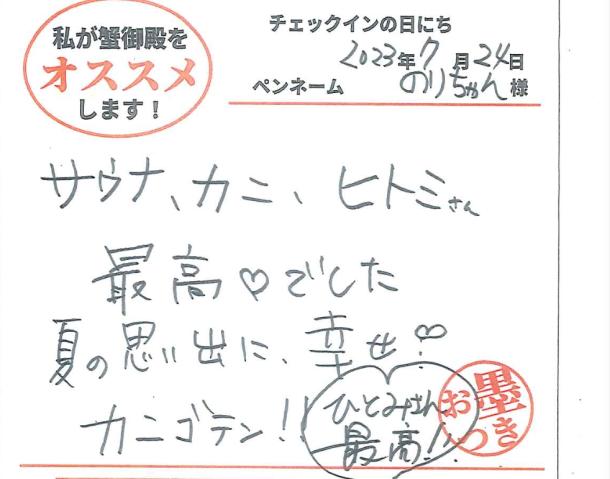 私が蟹御殿を
オススメ
します！
チェックインの日にち
2023年7月24日
ペンネーム のりちゃん様
サウナ、カニ、ヒトミさん
最高♡でした
夏の思い出に、幸せ♡
カニゴテン!!
ひとみさん
最高!!
お墨つき